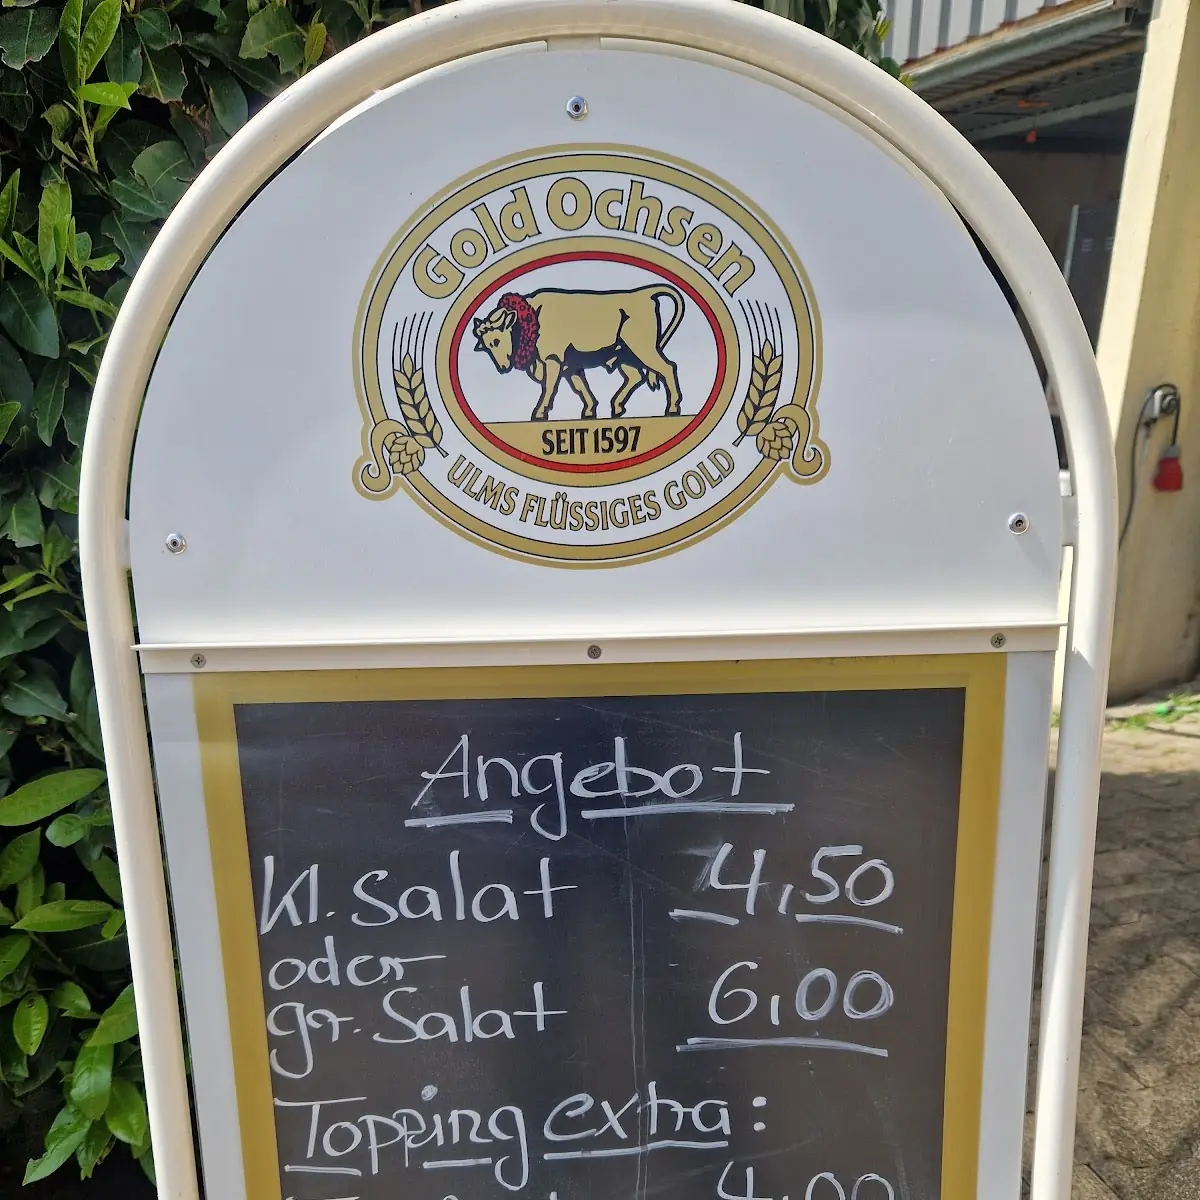 Gold Ochsen
SEIT 1597
ULMS FLÜSSIGES GOLD
Angebot
Kl. Salat 4,50
oder
gr. Salat 6,00
Topping extra:
4,00